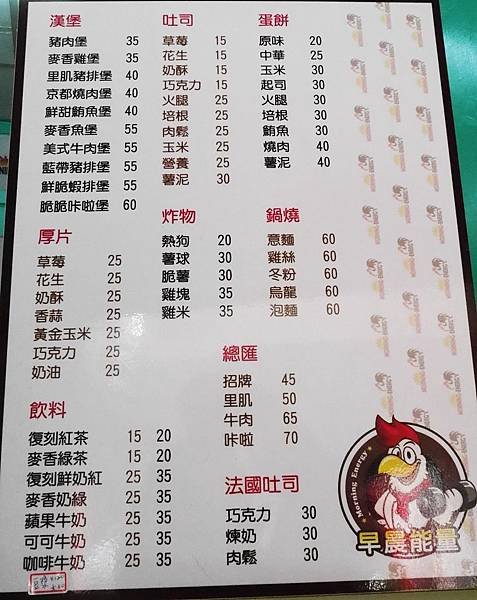 漢堡
豬肉堡 35
麥香雞堡 35
里肌豬排堡 40
京都燒肉堡 40
鮮甜鮪魚堡 40
麥香魚堡 55
美式牛肉堡 55
藍帶豬排堡 55
鮮脆蝦排堡 55
脆脆咔啦堡 60
吐司
草莓 15
花生 15
奶酥 15
巧克力 15
火腿 25
培根 25
肉鬆 25
玉米 25
營養 25
薯泥 30
蛋餅
原味 20
中華 25
玉米 30
起司 30
火腿 30
培根 30
鮪魚 30
燒肉 40
薯泥 40
厚片
草莓 25
花生 25
奶酥 25
香蒜 25
黃金玉米 25
巧克力 25
奶油 25
炸物
熱狗 20
薯球 30
脆薯 30
雞塊 35
雞米 35
鍋燒
意麵 60
雞絲 60
冬粉 60
烏龍 60
泡麵 60
總匯
招牌 45
里肌 50
牛肉 65
咔啦 70
飲料
復刻紅茶 15 20
麥香綠茶 15 20
復刻鮮奶紅 25 35
麥香奶綠 25 35
蘋果牛奶 25 35
可可牛奶 25 35
咖啡牛奶 25 35
法國吐司
巧克力 30
煉奶 30
肉鬆 30
Morning Energy
早晨能量